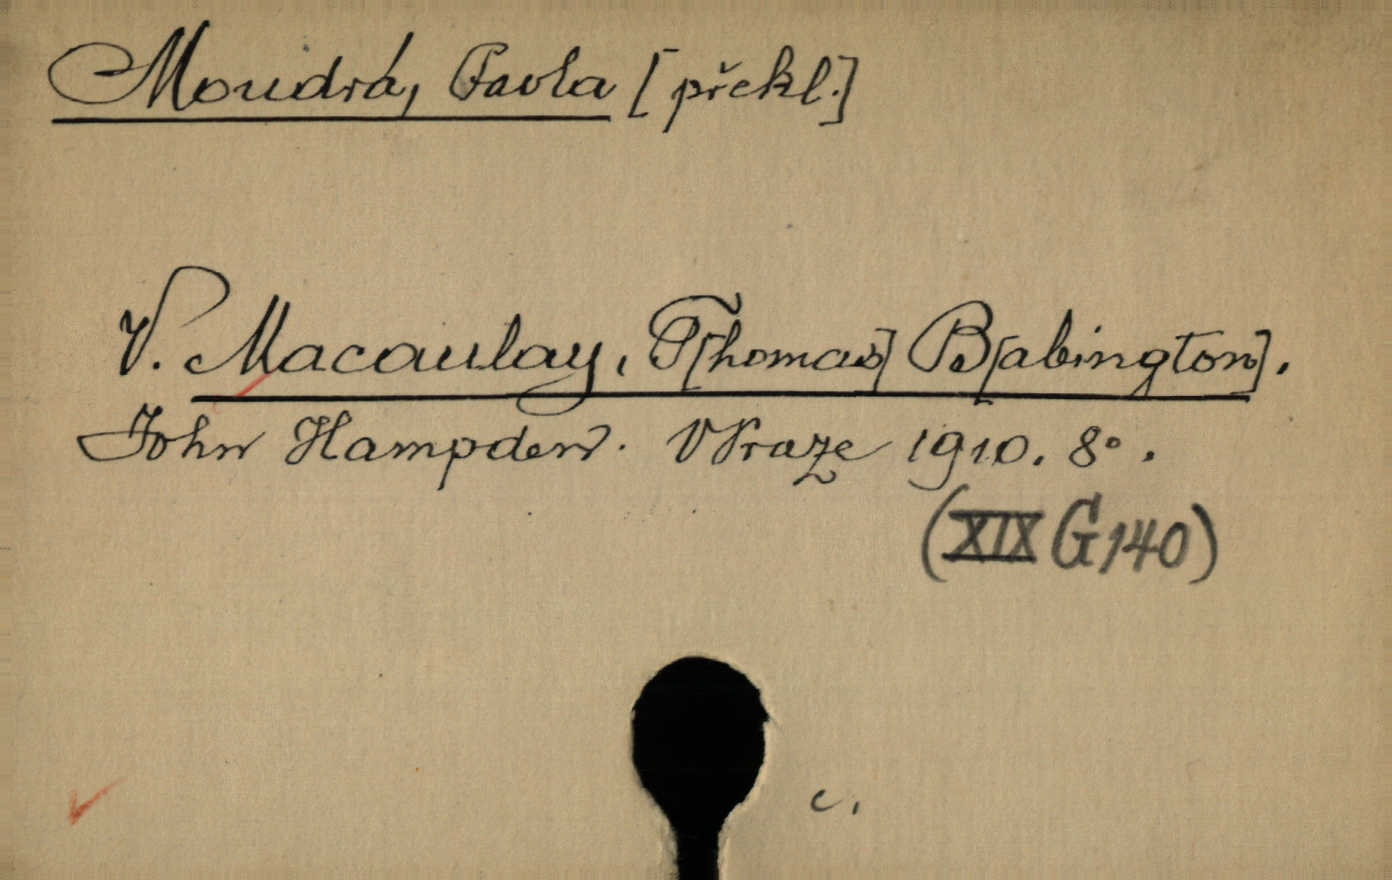 Moudrá, Pavla [překl.]
V. Macaulay, T[homas] B[abington].
John Hampden. V Praze 1910. 8°.
(XIX G 140)
c.